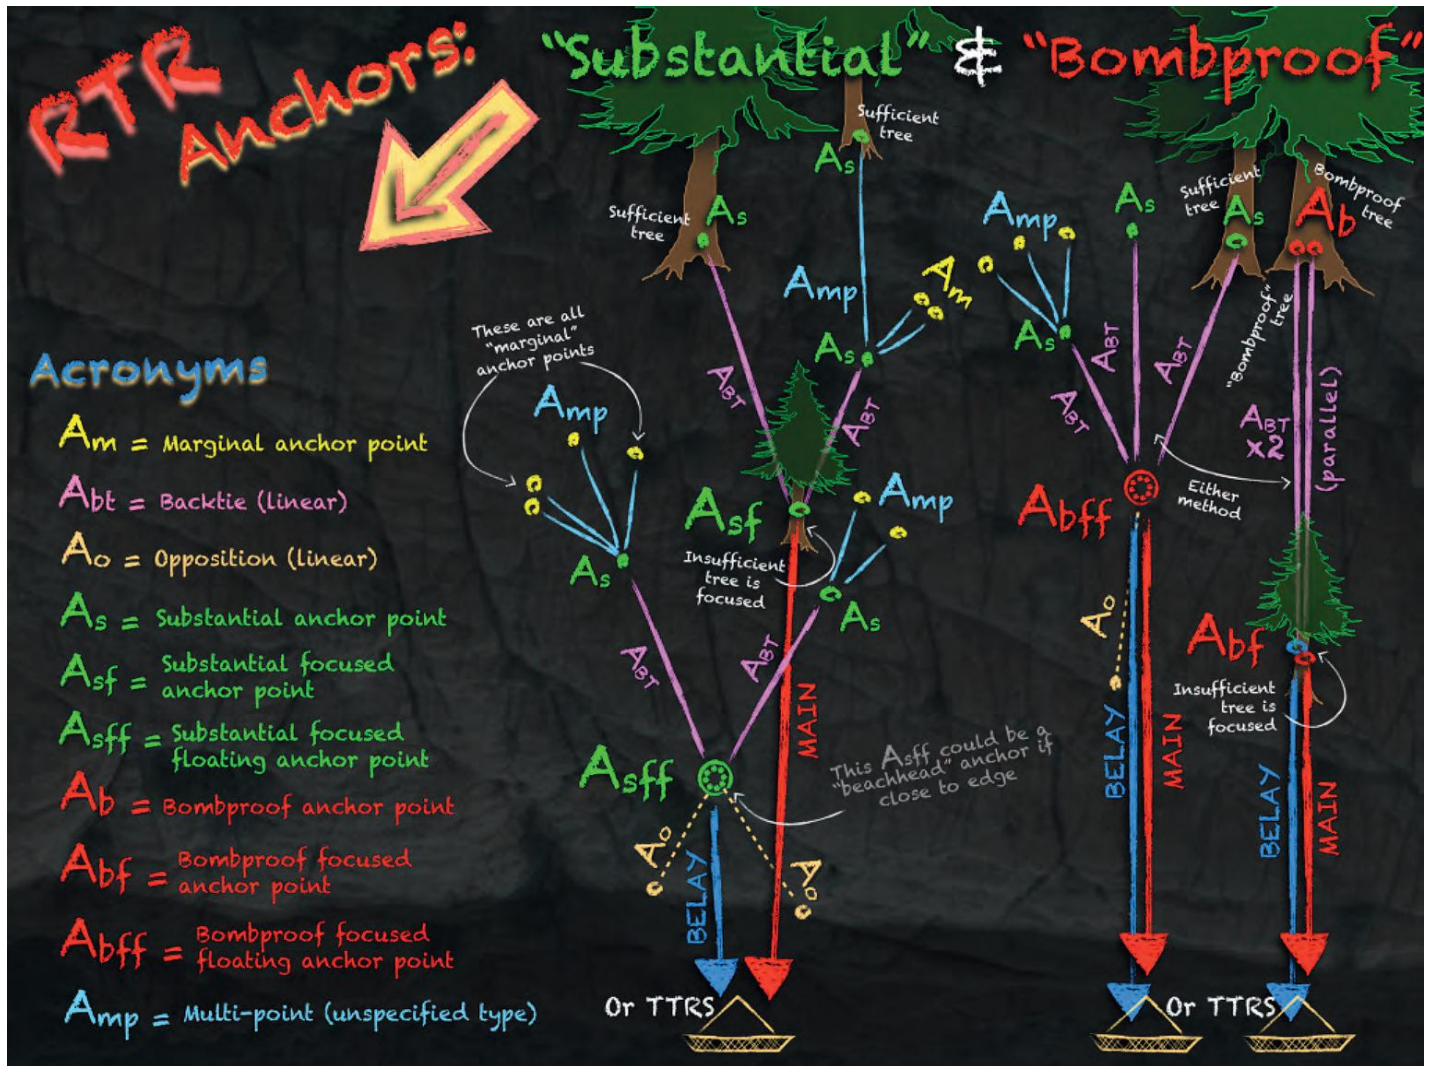 RTR
Anchors:
"Substantial" & "Bombproof"
Acronyms
Am = Marginal anchor point
Abt = Backtie (linear)
Ao = Opposition (linear)
As = Substantial anchor point
Asf = Substantial focused
anchor point
Asff = Substantial focused
floating anchor point
Ab = Bombproof anchor point
Abf = Bombproof focused
anchor point
Abff = Bombproof focused
floating anchor point
Amp = Multi-point (unspecified type)
Sufficient
tree
As
Sufficient
tree
As
Amp
Am
As
ABT
ABT
These are all
"marginal"
anchor points
Amp
As
Asf
Insufficient
tree is
focused
Amp
As
ABT
ABT
MAIN
Asff
This Asff could be a
"beachhead" anchor if
close to edge
Ao
Ao
BELAY
Or TTRS
Amp
As
As
ABT
ABT
ABT
Sufficient
tree
As
Bombproof
tree
Ab
"Bombproof"
tree
ABT
x2
(parallel)
Either
method
Abff
Ao
BELAY
MAIN
Abf
Insufficient
tree is
focused
BELAY
MAIN
Or TTRS